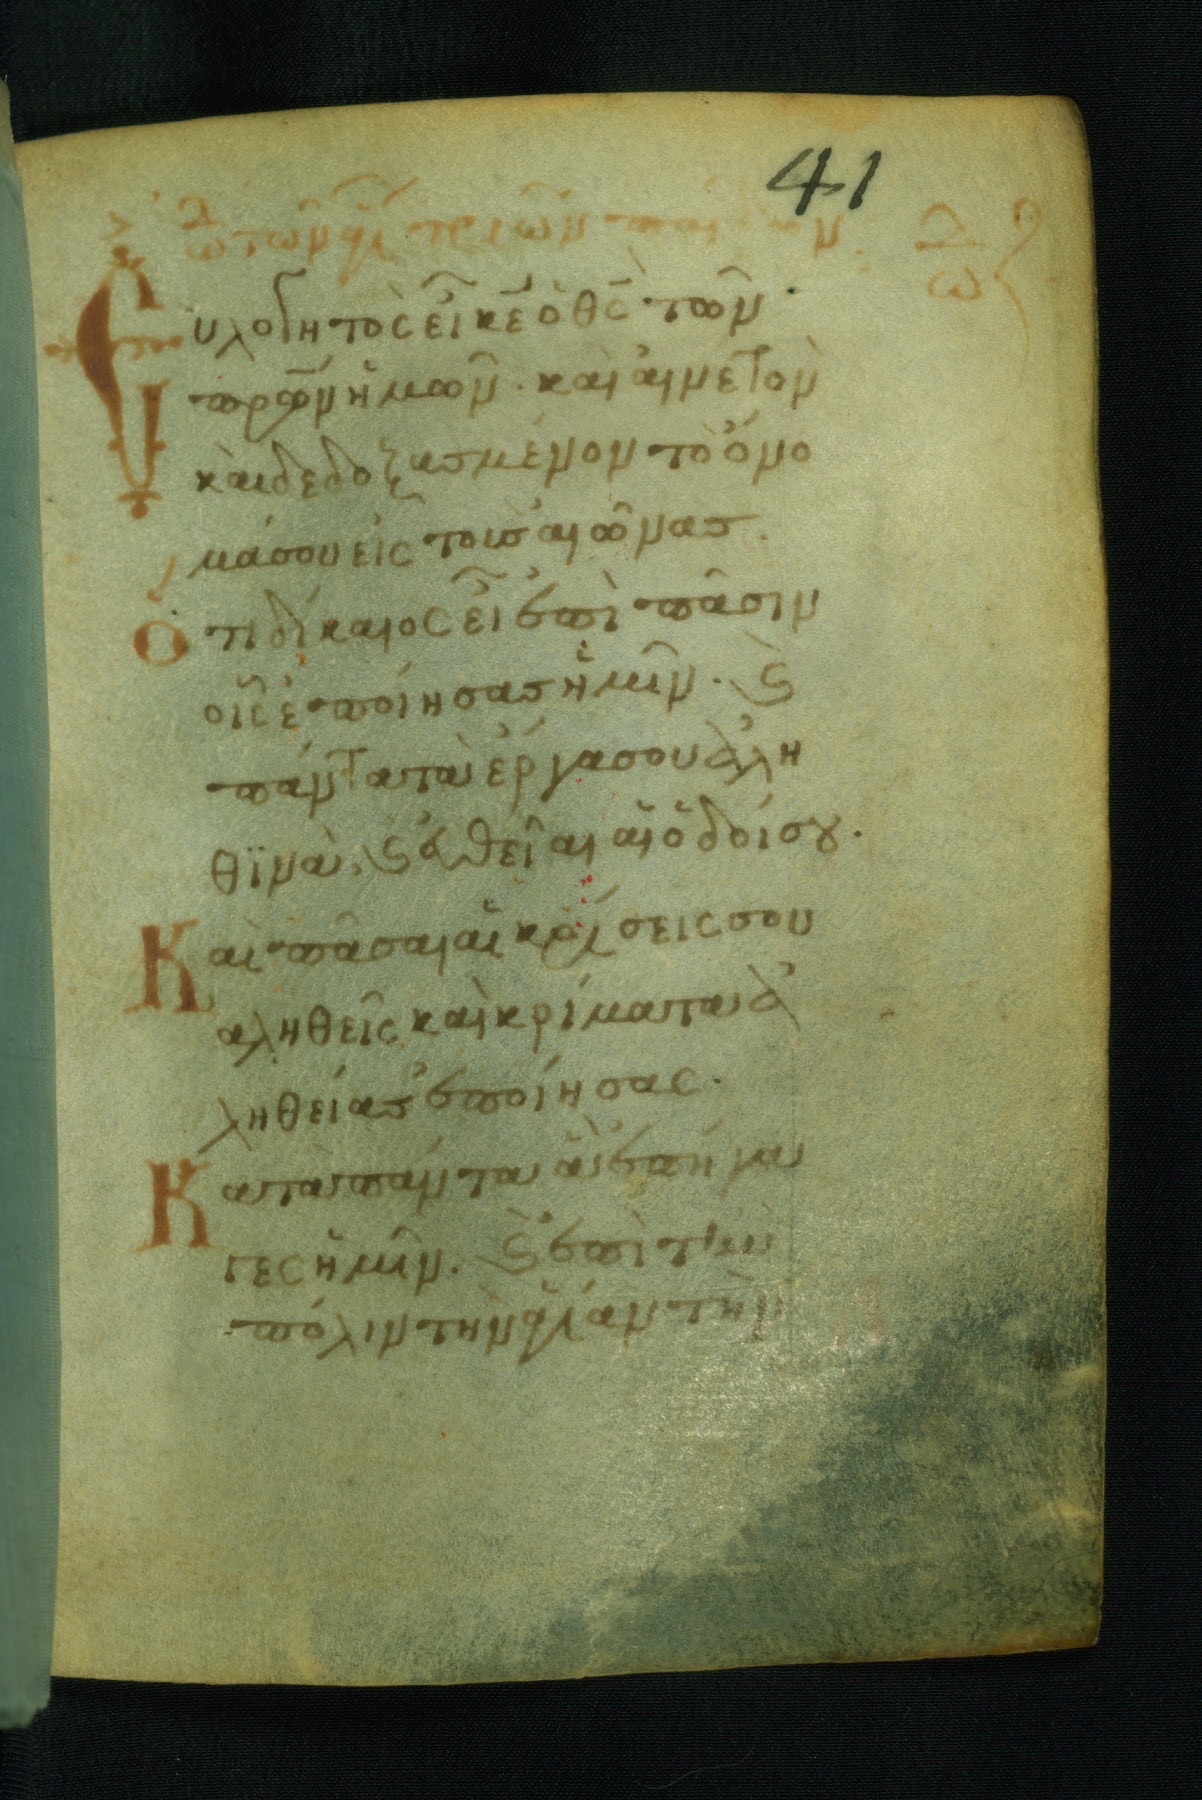 41
ᾠδὴ τῶν ἁγί τριῶν παίδων: ᾠδ ζ
Εὐλογητὸς εἶ κε ὁ θς τῶν
πρων ἡμῶν · καὶ αἰνετὸν
καὶ δεδοξασμένον τὸ ὄνο
μά σου εἰς τοὺς αἰῶνας.
Ὅτι δίκαιος εἶ ἐπὶ πᾶσιν
οἷς ἐποίησας ἡμῖν · ϗ
πάντα τὰ ἔργα σου ἀλη
θϊνὰ, ϗ εὐθεῖαι αἱ ὁδοί σου.
Καὶ πᾶσαι αἱ κρίσεις σου
ἀληθεῖς καὶ κρίματα ἀ
ληθείας ἐποίησας.
Κατὰ πάντα ἃ ἐπήγα
γες ἡμῖν. ϗ ἐπὶ τὴν
πόλιν τὴν ἁγίαν τὴν